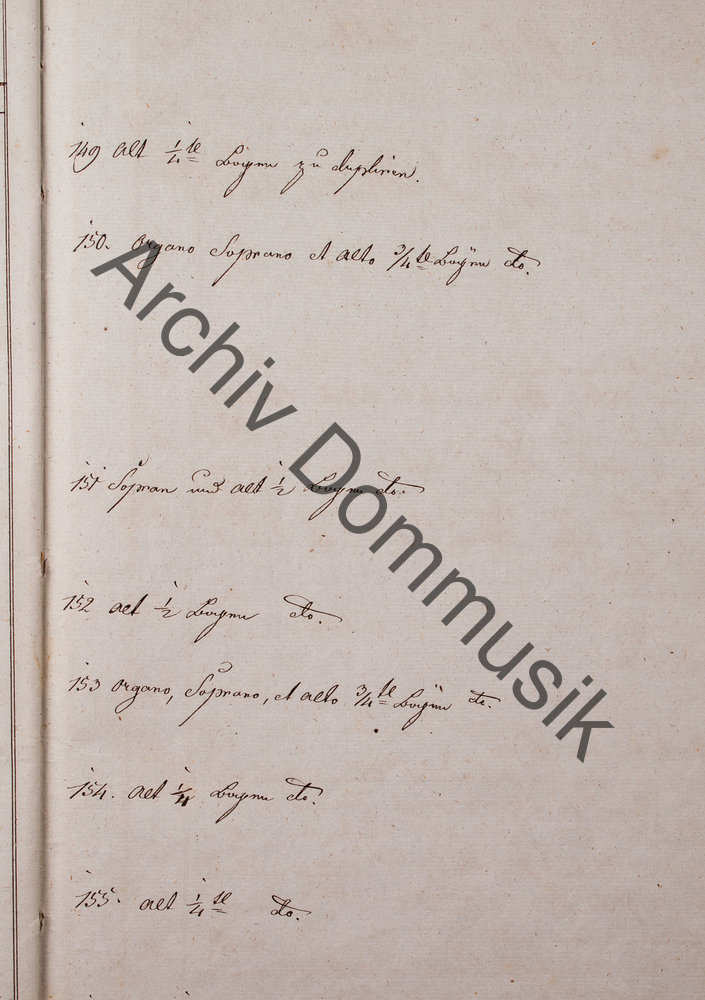 149 Alt 1/4te Bogen zu dupliren.
150. Organo Soprano et Alto 3/4te Bögen do.
151 Sopran und Alt 1/2 Bogen do.
152 Alt 1/2 Bogen do.
153 Organo, Soprano, et Alto 3/4te Bögen do.
154. Alt 1/4 Bogen do.
155. Alt 1/4te do.
Archiv Dommusik